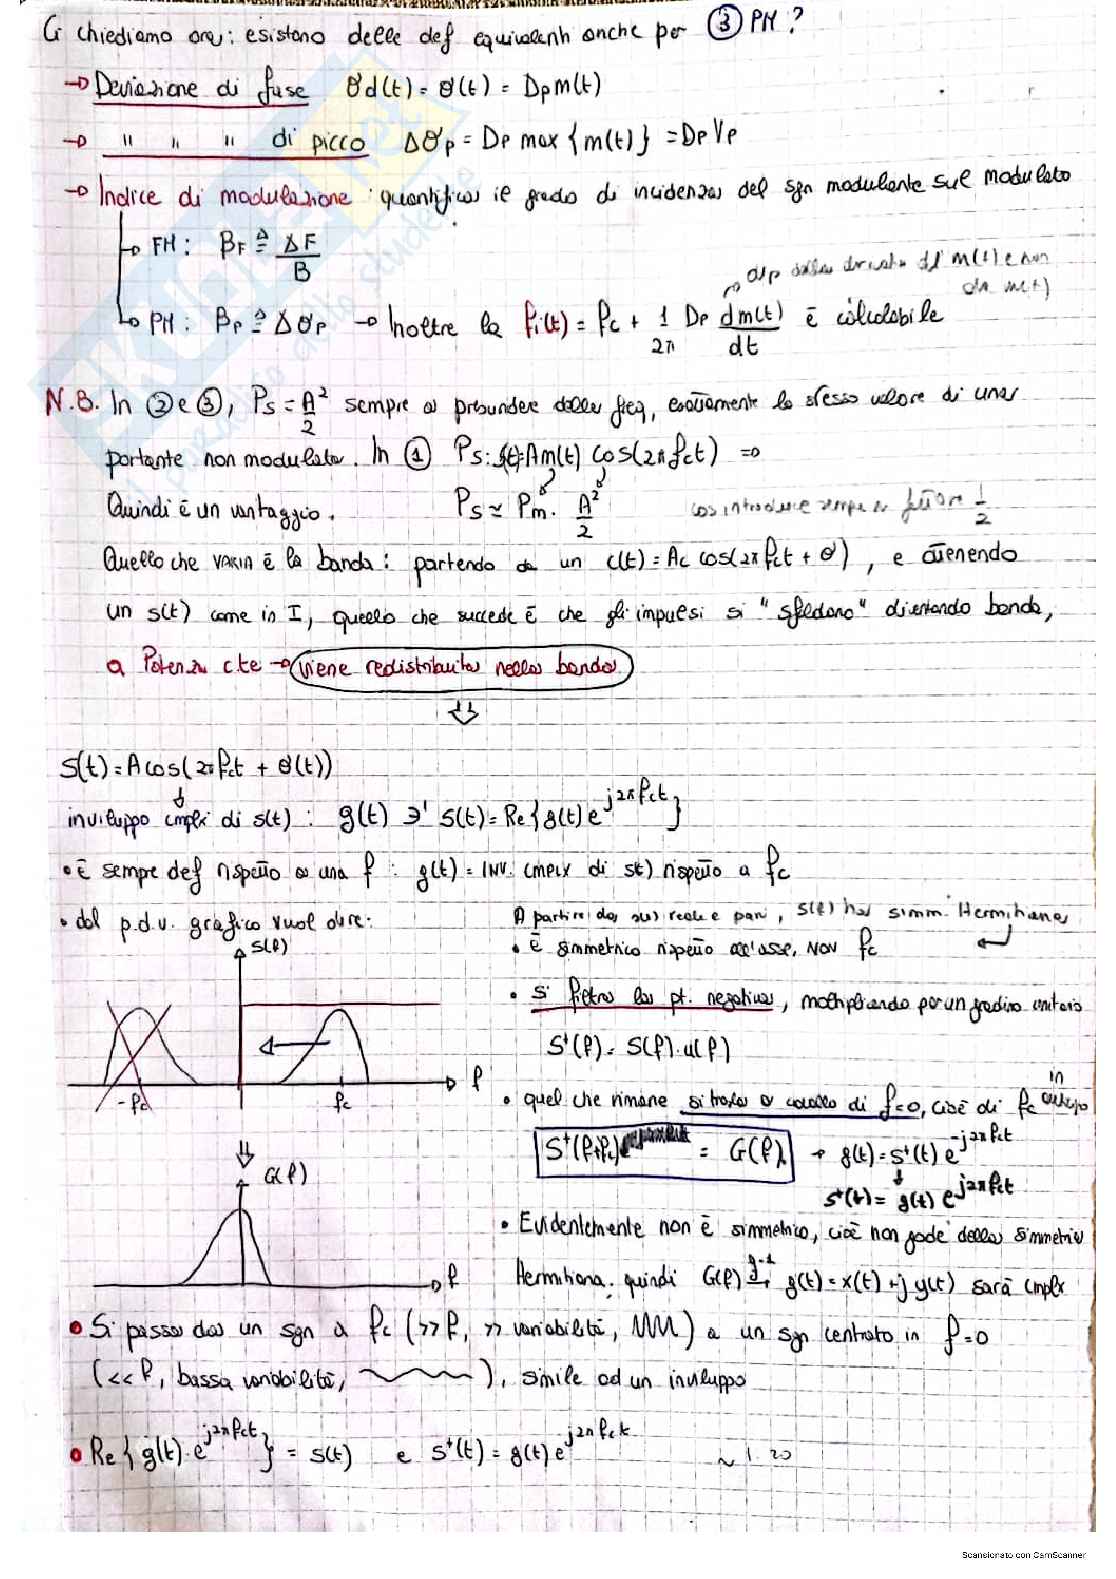 Ci chiediamo ora: esistono delle def equivalenti anche per ③ PM?
→ Deviazione di fase θd(t) = θ(t) = Dp m(t)
→ " " " di picco Δθp = Dp max {m(t)} = Dp Vp
→ Indice di modulazione: quantifica il grado di incidenza del sgn modulante sul modulato
→ FM: βF ≜ ΔF/B
dip dalla derivata di m(t) e non da m(t)
→ PM: βp ≜ Δθp → Inoltre la fi(t) = fc + 1/2π Dp dm(t)/dt è calcolabile
N.B. In ② e ③, Ps = A²/2 sempre a prescindere dalla freq, esattamente lo stesso valore di una
portante non modulata. In ① Ps: s(t)=Am(t) cos(2πfct) ⇒
Quindi è un vantaggio. Ps ≃ Pm · A²/2 cos introduce sempre un fattore 1/2
Quello che VARIA è la banda: partendo da un c(t) = Ac cos(2πfct + θ), e ottenendo
un s(t) come in I, quello che succede è che gli impulsi si "sfaldano" diventando banda,
a Potenza cte → viene redistribuita nella banda
⇓
s(t) = A cos(2πfct + θ(t))
inviluppo cmplx di s(t): g(t) ∋' s(t) = Re{g(t) e^{j2πfct}}
• È sempre def rispetto a una f: g(t) = INV. CMPLX di s(t) rispetto a fc
• dal p.d.v. grafico vuol dire:
A partire da s(t) reale e pari, S(f) ha simm. Hermitiana
• è simmetrico rispetto all'asse, NON fc
S(f)
• Si filtra la pt. negativa, moltipliando per un gradino unitario
S⁺(f) = S(f)·u(f)
-fc fc f
• quel che rimane si trasla a cavallo di f=0, cioè di fc in anticipo
S⁺(f+fc) = G(f) → g(t) = s⁺(t) e^{-j2πfct}
s⁺(t) = g(t) e^{j2πfct}
G(f)
f
• Evidentemente non è simmetrico, cioè non gode della simmetria
Hermitiana, quindi G(f) →^{F⁻¹} g(t) = x(t) + j y(t) sarà cmplx
• Si passa da un sgn a fc (>> f, >> variabilità, ) a un sgn centrato in f=0
(<< f, bassa variabilità, ), simile ad un inviluppo
• Re{g(t)·e^{j2πfct}} = s(t) e s⁺(t) = g(t) e^{j2πfct} ~ 1.20
Scansionato con CamScanner